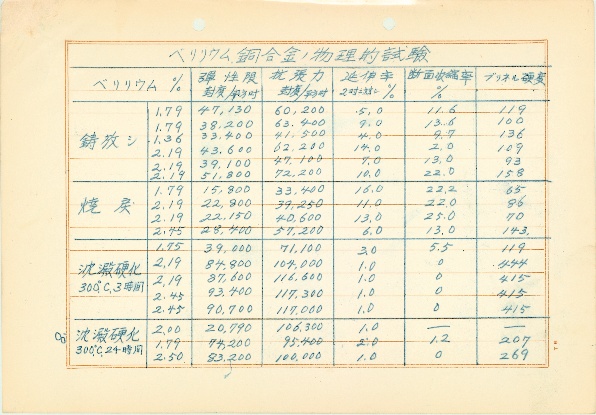 ベリリウム銅合金ノ物理的試験
ベリリウム % 弾性限 封度/平方吋 抗張力 封度/平方吋 延伸率 2吋ニ対シ % 断面収縮率 % ブリネル硬度
鋳放シ
1.79 47,130 60,200 5.0 11.6 119
1.79 38,200 63,400 9.0 13.6 100
1.36 33,400 41,500 4.0 9.7 136
2.19 43,600 62,200 14.0 2.0 109
2.19 39,100 47,100 7.0 13.0 93
2.19 51,800 72,200 10.0 22.0 158
焼戻
1.79 15,800 33,400 16.0 22.2 65
2.19 22,800 39,250 11.0 22.0 86
2.19 22,150 40,600 13.0 25.0 70
2.45 28,400 57,200 6.0 13.0 143
沈澱硬化
300℃, 3時間
1.75 39,000 71,100 3.0 5.5 119
2.19 84,800 104,000 1.0 0 444
2.19 87,600 116,600 1.0 0 415
2.45 93,400 117,300 1.0 0 415
2.45 90,700 117,000 1.0 0 415
沈澱硬化
300℃, 24時間
2.00 20,790 106,300 1.0 — —
1.79 74,200 95,400 2.0 1.2 207
2.50 83,200 100,000 1.0 0 269